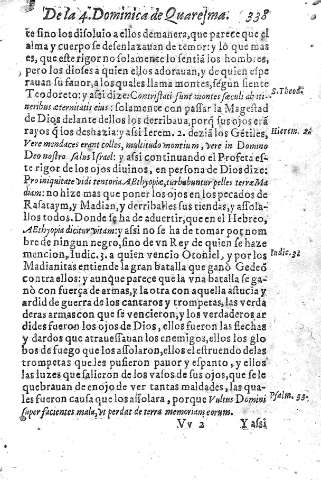 De la 4. Dominica de Quaresma. 338
te sino los disoluio a ellos demanera, que parece que el
alma y cuerpo se desenlazauan de temor: y lo que mas
es, que este rigor no solamente lo sentiã los hombres,
pero los dioses a quien ellos adorauan, y de quien espe
rauan su fauor, a los quales llama montes, segun siente
Teodoreto: y assi dize: Contristati sunt montes sæculi ab iti-
S. Theod.
neribus æternitatis eius: solamente con passar la Magestad
de Dios delante dellos los derribaua, porq̃ sus ojos erã
rayos q̃ los deshazia: y assi Ierem. 2. dezia los Gẽtiles,
Hierem. 2.
Vere mendaces erant colles, multitudo montium, vere in Domino
Deo nostro salus Israel: y assi continuando el Profeta es-
te rigor de los ojos diuinos, en persona de Dios dize:
Pro iniquitate vidi tentoria AEthyopiæ, turbabuntur pelles terræ Ma
diam: no hize mas que poner los ojos en los pecados de
Rasataym, y Madian, y derribales sus tiendas, y assola-
llos todos. Donde se ha de aduertir, que en el Hebreo,
AEthyopia dicitur vitam: y assi no se ha de tomar por nom
bre de ningun negro, sino de vn Rey de quien se haze
mencion, Iudic. 3. a quien vencio Otoniel, y por los
Iudic. 3.
Madianitas entiende la gran batalla que ganò Gedeõ
contra ellos: y aunque parece que la vna batalla se ga-
nò con fuerça de armas, y la otra con aquella astucia y
ardid de guerra de los cantaros y trompetas, las verda
deras armas con que se vencieron, y los verdaderos ar
dides fueron los ojos de Dios, ellos fueron las flechas
y dardos que atrauessauan los enemigos, ellos los glo
bos de fuego que los assolaron, ellos el estruendo delas
trompetas que les pusieron pauor y espanto, y ellos
las luzes que salieron de los vasos de sus ojos, que se le
quebrauan de enojo de ver tantas maldades, las qua-
les fueron causa que los assolara, porque Vultus Domini
Psalm. 33.
super facientes mala, vt perdat de terra memoriam eorum.
Vv 2 Y assi